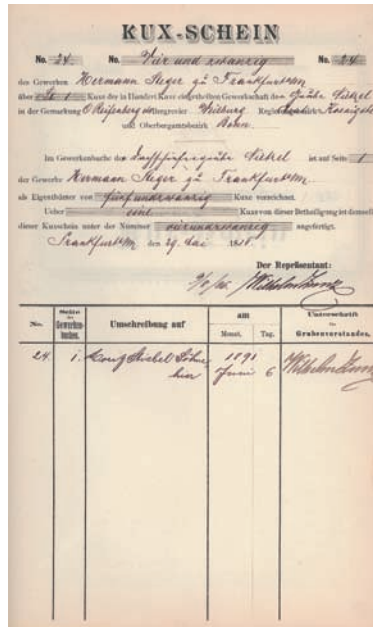 KUX-SCHEIN
No. 24 No. Vier und zwanzig No. 24
des Gewerken Hermann Steger zu Frankfurt a/M
über 1 Kuxe der in Hundert Kuxe eingetheilten Gewerkschaft des Grube Nickel
in der Gemarkung O Reifenberg Bergrevier Weilburg
und Oberbergamtsbezirk Bonn.
Im Gewerkenbuche der Nickel ist auf Seite 1
der Gewerke Hermann Steger zu Frankfurt a/M
als Eigenthümer von fünfundzwanzig Kuxe verzeichnet.
Ueber eine Kuxe von dieser Betheiligung ist demselben
dieser Kuxschein unter der Nummer vierundzwanzig angefertigt.
Frankfurt a/M den 29 Mai
Der Repräsentant:
No. Seite der Gewerken-buches. Umschreibung auf am Monat. Tag. Unterschrift des Grubenvorstandes.
24 1. 1891
hier Juni 6 Wilhelm